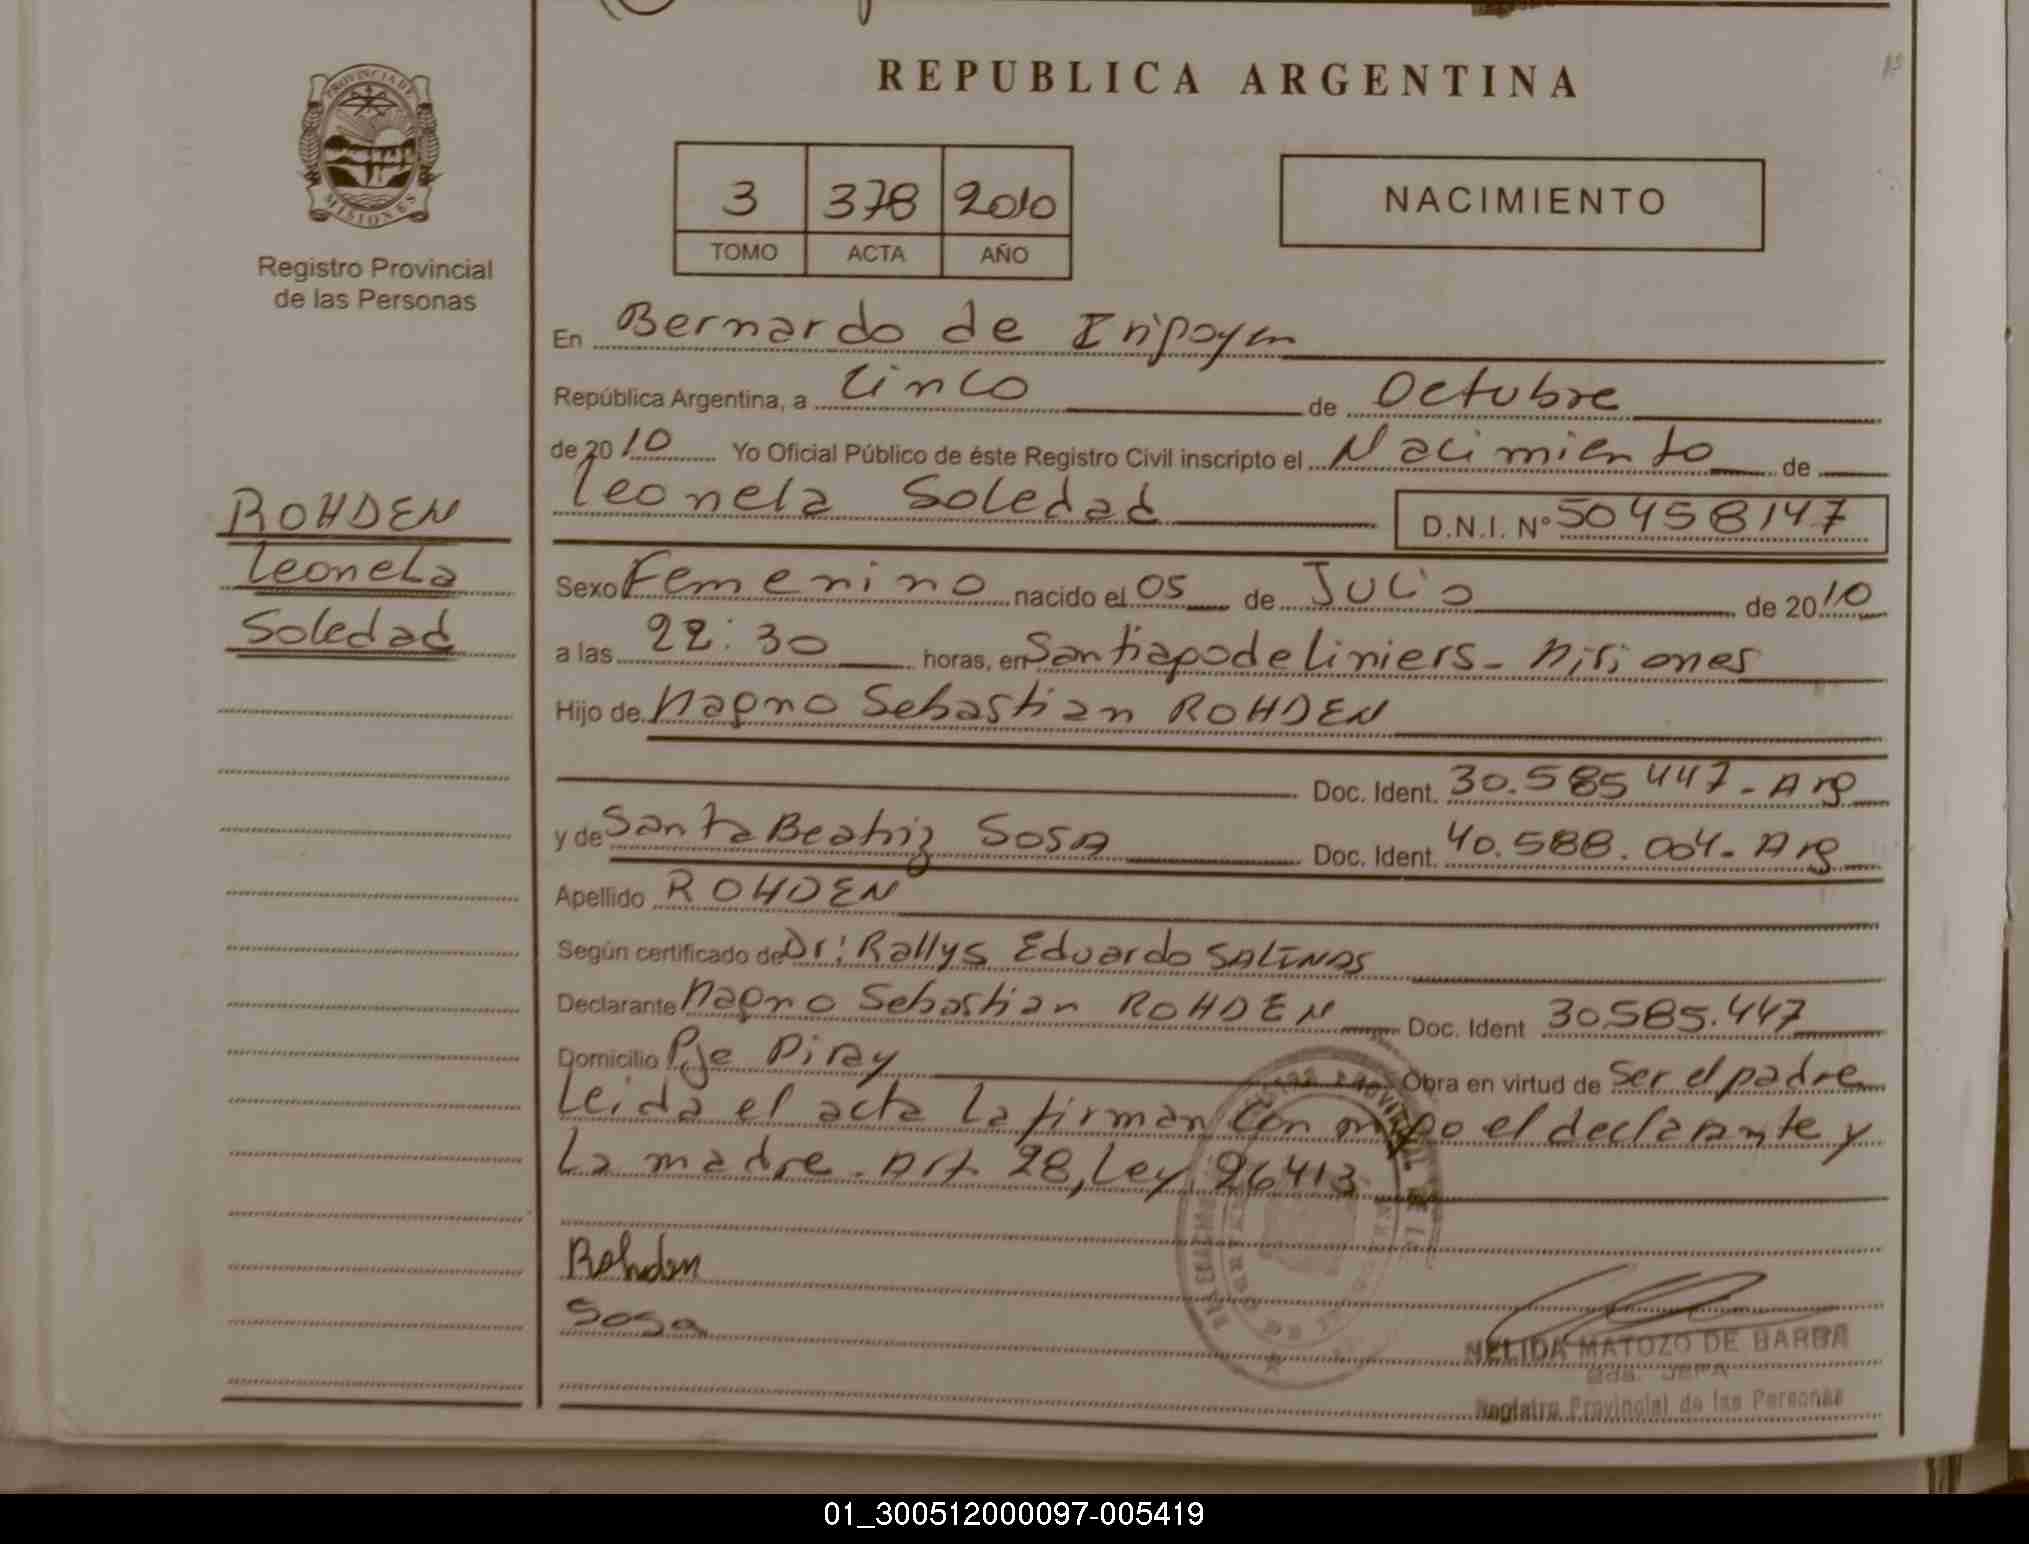 REPUBLICA ARGENTINA
PROVINCIA DE
MISIONES
Registro Provincial
de las Personas
3 378 2010
TOMO ACTA AÑO
NACIMIENTO
ROHDEN
Leonela
Soledad
En Bernardo de Iripoyen
República Argentina, a Cinco de Octubre
de 2010 Yo Oficial Público de éste Registro Civil inscripto el Nacimiento de
Leonela Soledad D.N.I. Nº 50458147
Sexo Femenino nacido el 05 de Julio de 2010
a las 22:30 horas, en Santiapo de Liniers - Misiones
Hijo de Magno Sebastian ROHDEN
Doc. Ident. 30.585447- Arg
y de Santa Beatriz SOSA Doc. Ident. 40.588.004- Arg
Apellido ROHDEN
Según certificado de Dr: Rallys Eduardo SALINAS
Declarante Magno Sebastian ROHDEN Doc. Ident 30585.447
Domicilio Pje Piray Obra en virtud de Ser el padre
Leida el acta La firman Con migo el declarante y
La madre. Art 28, Ley 26413
Rohden
Sosa
NELIDA MATOZO DE BARBA
Registro Provincial de las Personas
01_300512000097-005419